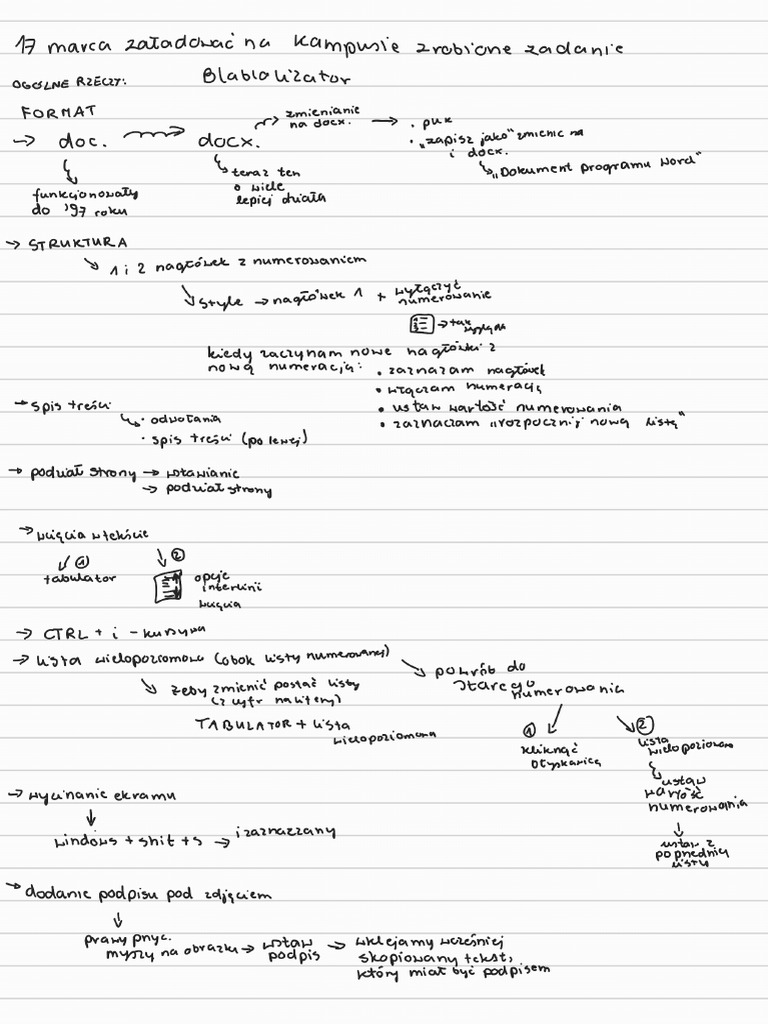 17 marca załadować na Kampusie zrobione zadanie
OGÓLNE RZECZY:
Blablalizator
FORMAT
→ doc. → docx. → zmienianie na docx. → • plik
• „zapisz jako" zmienić na i docx.
„Dokument programu Word"
funkcjonowały do '97 roku
teraz ten o wiele lepiej działa
→ STRUKTURA
1 i 2 nagłówek z numerowaniem
style → nagłówek 1 + wyłączyć numerowanie
→ tak wygląda
kiedy zaczynam nowe nagłówki z
nową numeracją:
• zaznaczam nagłówek
• włączam numerację
• ustaw wartość numerowania
• zaznaczam „rozpocznij nową listę"
→ spis treści
• odwołania
• spis treści (po lewej)
→ podział strony → wstawianie
→ podział strony
→ wcięcia w tekście
① tabulator
② opcje interlinii
wcięcia
→ CTRL + i - kursywa
→ lista wielopoziomowa (obok listy numerowanej)
żeby zmienić postać listy
(z cyfr na litery)
TABULATOR + lista
wielopoziomowa
powrót do
starego
numerowania
① kliknąć
② lista
wielopoziomowa
ustaw
wartość
numerowania
ustaw z
poprzedniej
listy
→ wycinanie ekranu
windows + shit + s → i zaznaczamy
→ dodanie podpisu pod zdjęciem
prawy przyc.
myszy na obrazku → wstaw
podpis
→ wklejamy wcześniej
skopiowany tekst,
który miał być podpisem